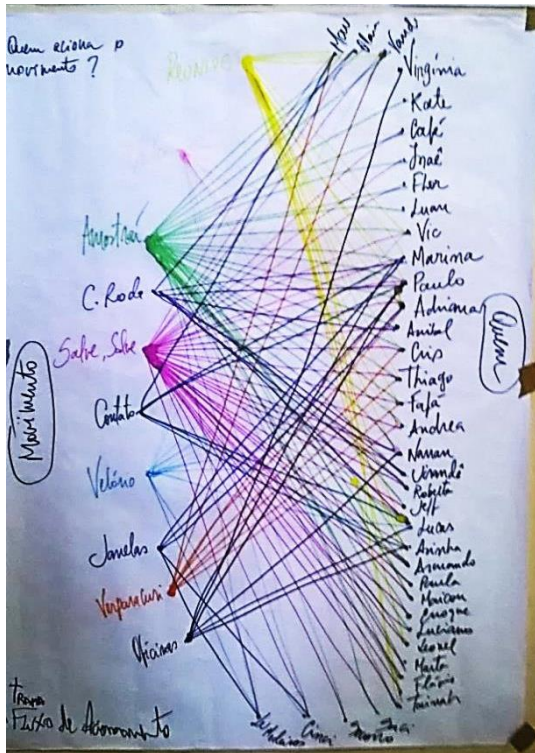 Quem aciona o
movimento?
Reunião
Amostraí
C. Roda
Salve, Salve
Contato
Velório
Janelas
Oficinas
Movimento
Fluxo de Acionamento
Virgínia
Kate
Café
Inaê
Flor
Luan
Vic
Marina
Paulo
Adriana
Anibal
Cris
Thiago
Fafá
Andrea
Roberta
Jeff
Lucas
Aninha
Armando
Paula
Maicon
Luciano
Leonel
Marta
Flávio
Tainah
Quem